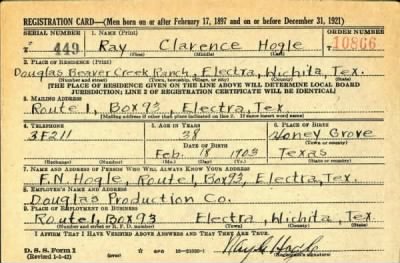 REGISTRATION CARD—(Men born on or after February 17, 1897 and on or before December 31, 1921)
SERIAL NUMBER 1. NAME (Print) ORDER NUMBER
T 449 Ray Clarence Hogle 10866
(First) (Middle) (Last)
2. PLACE OF RESIDENCE (Print)
Douglas Beaver Creek Ranch, Electra, Wichita, Tex.
(Number and street) (Town, township, village, or city) (County) (State)
[THE PLACE OF RESIDENCE GIVEN ON THE LINE ABOVE WILL DETERMINE LOCAL BOARD
JURISDICTION; LINE 2 OF REGISTRATION CERTIFICATE WILL BE IDENTICAL]
3. MAILING ADDRESS
Route 1, Box 93, Electra, Tex
[Mailing address if other than place indicated on line 2. If same insert word same]
4. TELEPHONE 5. AGE IN YEARS 6. PLACE OF BIRTH
3F211 38 Honey Grove
DATE OF BIRTH (Town or county)
Feb. 18 1903 Texas
(Exchange) (Number) (Mo.) (Day) (Yr.) (State or country)
7. NAME AND ADDRESS OF PERSON WHO WILL ALWAYS KNOW YOUR ADDRESS
F.N. Hogle, Route 1, Box 93, Electra, Tex.
8. EMPLOYER'S NAME AND ADDRESS
Douglas Production Co.
9. PLACE OF EMPLOYMENT OR BUSINESS
Route 1, Box 93 Electra, Wichita, Tex.
(Number and street or R. F. D. number) (Town) (County) (State)
I AFFIRM THAT I HAVE VERIFIED ABOVE ANSWERS AND THAT THEY ARE TRUE.
D. S. S. Form 1
(Revised 1-1-42) GPO 16—21630-1
(Registrant's signature)